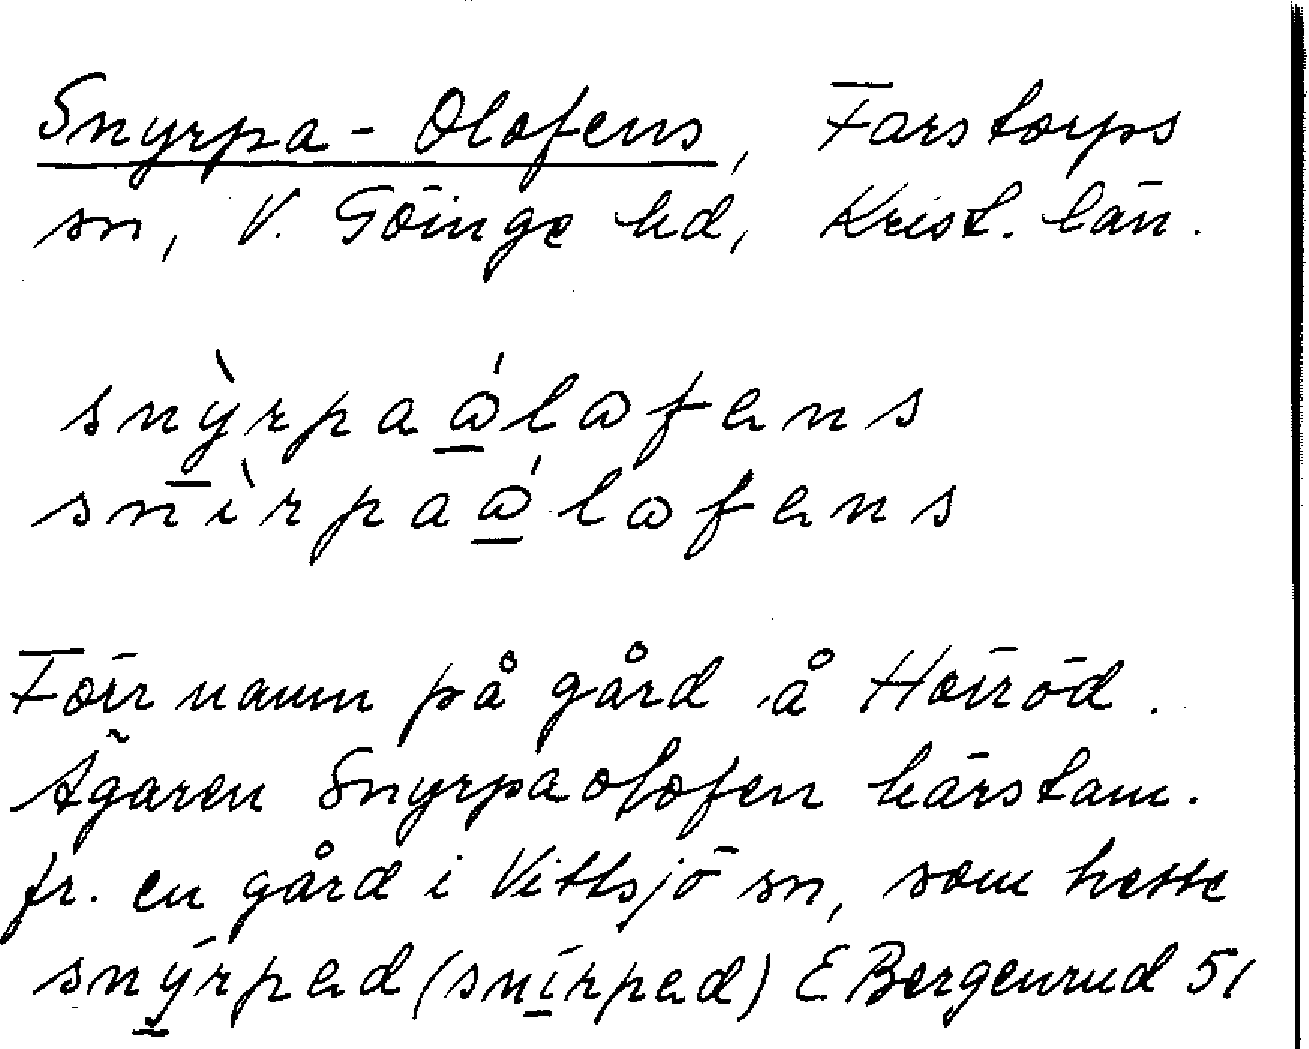 Snyrpa-Olofens, Farstorps
sn, V. Göinge hd, Krist. län.
snỳrpaɷ́lɷfens
snìrpaɷ́lɷfens
Förr namn på gård å Hörröd.
Ägaren Snyrpaolofen härstam.
fr. en gård i Vittsjö sn, som hette
snýrped (snírped) E Bergenrud 51